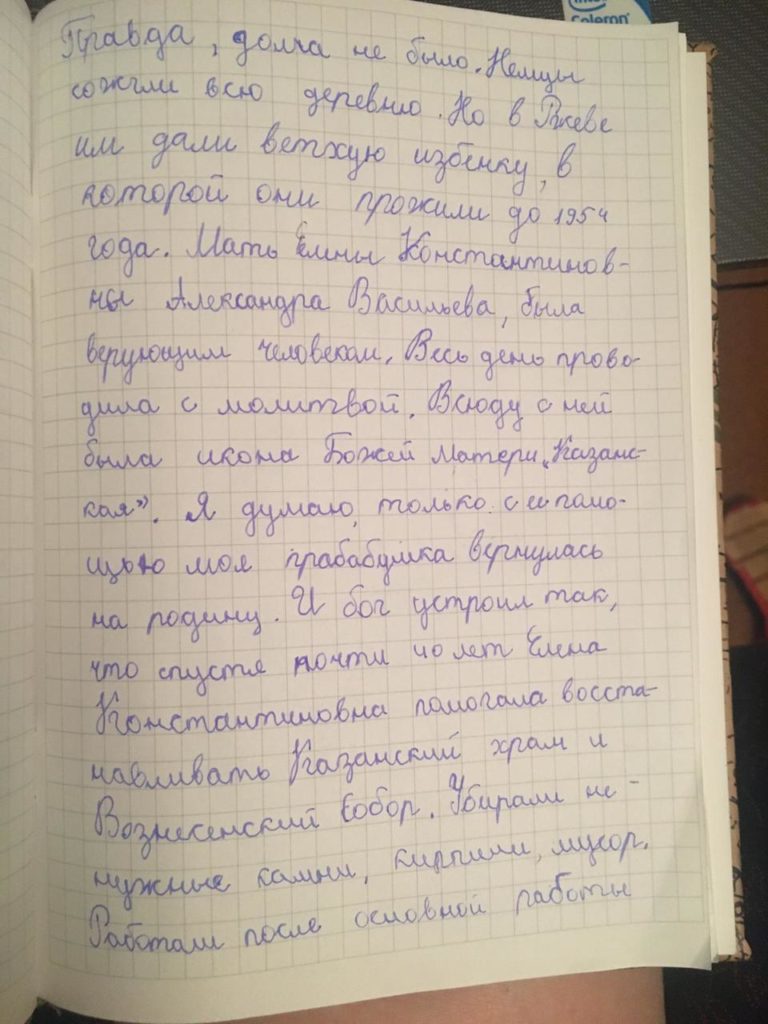 intel
Celeron
Правда, дома не было. Немцы
сожгли всю деревню. Но в Ржеве
им дали ветхую избёнку, в
которой они прожили до 1954
года. Мать Елены Константинов-
ны Александра Васильева, была
верующим человеком. Весь день прово-
дила с молитвой. Всюду с ней
была икона Божей Матери „Казанс-
кая”. Я думаю, только с её помо-
щью моя прабабушка вернулась
на родину. И бог устроил так,
что спустя почти 40 лет Елена
Константиновна помогала восста-
навливать Казанский храм и
Вознесенский Собор. Убирали не-
нужные камни, кирпичи, мусор.
Работали после основной работы